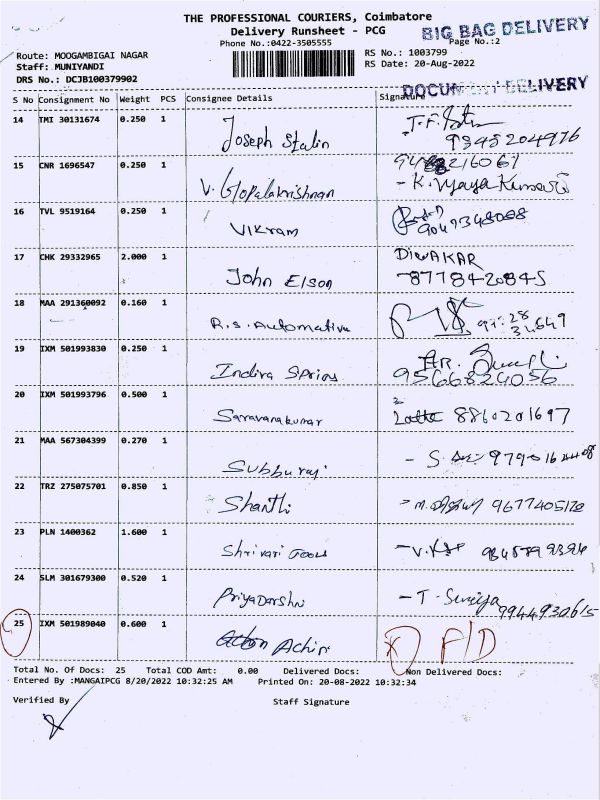 THE PROFESSIONAL COURIERS, Coimbatore
Delivery Runsheet - PCG
BIG BAG DELIVERY
Phone No.:0422-3505555
Page No.:2
Route: MOOGAMBIGAI NAGAR
RS No.: 1003799
Staff: MUNIYANDI
RS Date: 20-Aug-2022
DRS No.: DCJB100379902
DOCUMENT DELIVERY
S No Consignment No Weight PCS Consignee Details Signature
14 TMI 30131674 0.250 1 Joseph Stalin
9345204976
15 CNR 1696547 0.250 1 V. Gopalakrishnan
- K. Vijaya Kumari
16 TVL 9519164 0.250 1 Vikram
9047348088
17 CHK 29332965 2.000 1 John Elson DIWAKAR
8778420845
18 MAA 291360092 0.160 1 R.S. Automative
19 IXM 501993830 0.250 1 Indira
9566824056
20 IXM 501993796 0.500 1 Saravanakumar 8860201697
21 MAA 567304399 0.270 1 Subburaj - S
22 TRZ 275075701 0.850 1 Shanthi 9677405128
23 PLN 1400362 1.600 1 Shrivari Tools
24 SLM 301679300 0.520 1 Priyadarshni - T. Suriya
9944930615
25 IXM 501989040 0.600 1 F/D
Total No. Of Docs: 25 Total COD Amt: 0.00 Delivered Docs: Non Delivered Docs:
Entered By :MANGAIPCG 8/20/2022 10:32:25 AM Printed On: 20-08-2022 10:32:34
Verified By Staff Signature